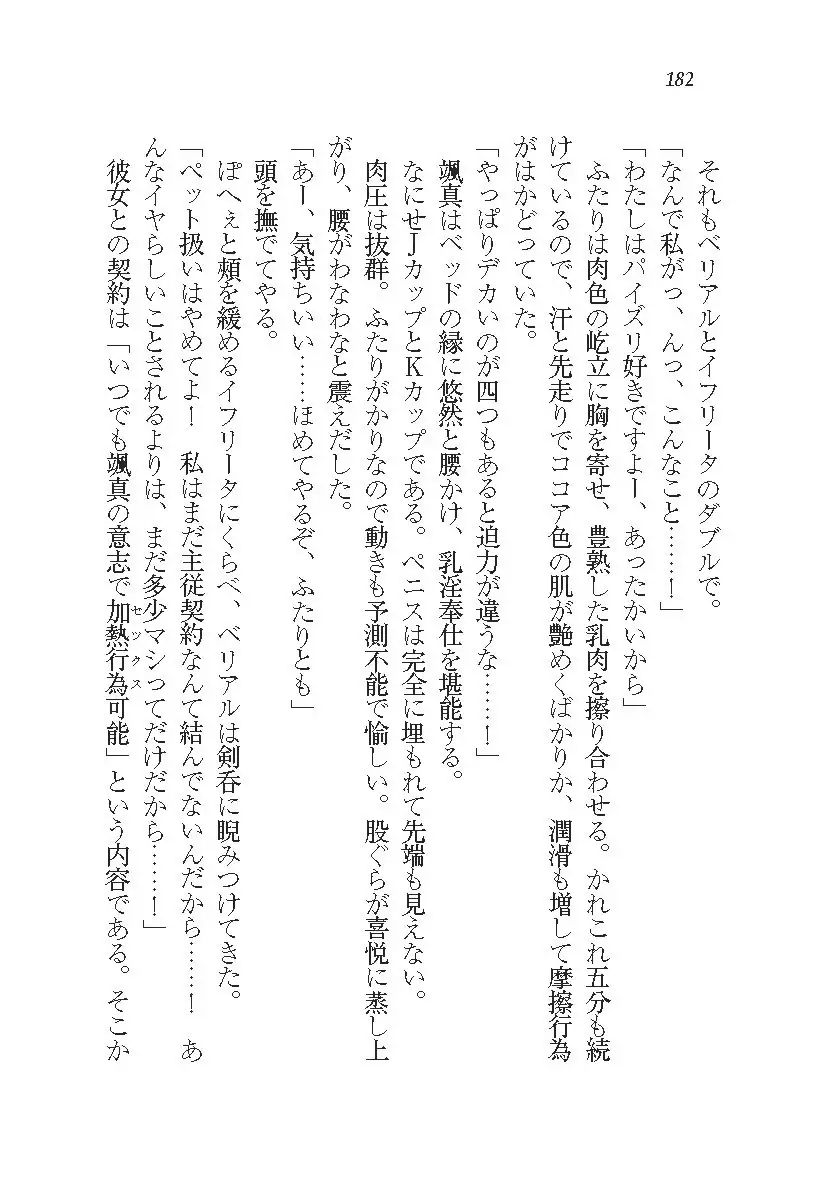 182
それもベリアルとイフリータのダブルで。
「なんで私がっ、んっ、こんなこと……！」
「わたしはパイズリ好きですよー、あったかいから」
ふたりは肉色の屹立に胸を寄せ、豊熟した乳肉を擦り合わせる。かれこれ五分も続
けているので、汗と先走りでココア色の肌が艶めくばかりか、潤滑も増して摩擦行為
がはかどっていた。
「やっぱりデカいのが四つもあると迫力が違うな……！」
颯真はベッドの縁に悠然と腰かけ、乳淫奉仕を堪能する。
なにせＪカップとＫカップである。ペニスは完全に埋もれて先端も見えない。
肉圧は抜群。ふたりがかりなので動きも予測不能で愉しい。股ぐらが喜悦に蒸し上
がり、腰がわなわなと震えだした。
「あー、気持ちいい……ほめてやるぞ、ふたりとも」
頭を撫でてやる。
ぽへぇと頬を緩めるイフリータにくらべ、ベリアルは剣呑に睨みつけてきた。
「ペット扱いはやめてよ！　私はまだ主従契約なんて結んでないんだから……！　あ
んなイヤらしいことされるよりは、まだ多少マシってだけだから……！」
彼女との契約は「いつでも颯真の意志で加熱行為可能」という内容である。そこか
セックス